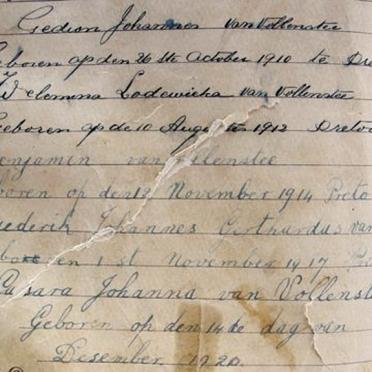 Gedion Johannes van Vollenstee
Geboren op den 26 ste October 1910 te Pre
Welemina Lodewicka van Vollenstee
Geboren op de 10 Augs te 1912 Pretor
enjamin van ollenstee
boren op den 12 November 1914 Preto
rederik Johannes Gerthardus van
en 1 st November 1917
sara Johanna van Vollenst
Geboren op den 14 de dag van
Desember 1920.